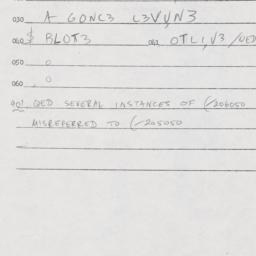 030 A GONC3 L3VVN3
040 $ BLOT3 063 OTL1,V3/UED
050 0
060 0
901 QED SEVERAL INSTANCES OF (/206050
MISREFERRED TO (/205050